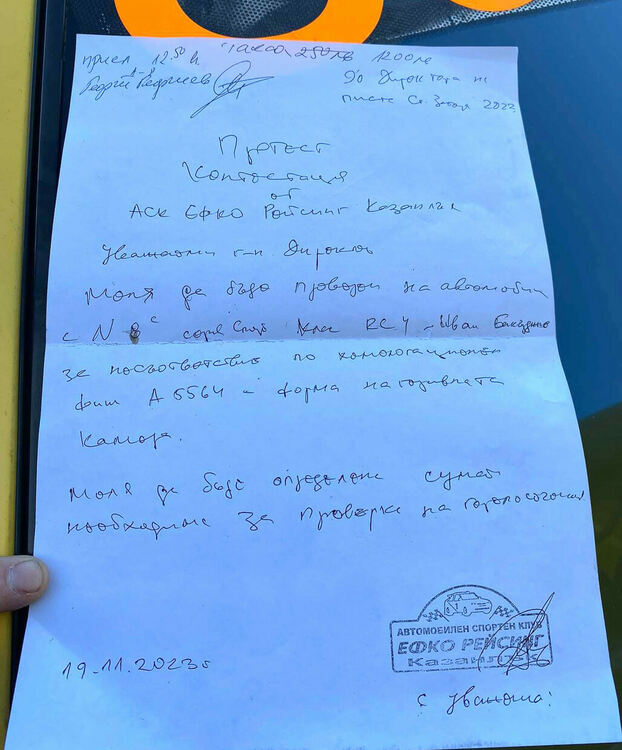 приел 12.50 ч такса 250 лв 1200 лв
Георги Георгиев
До Директора на
писта Ст. Загора 2023
Протест
Контестация
от
АСК ЕФКО Рейсинг Казанлък
Уважаеми г-н Директор
Моля да бъде проверен на автомобил
с N 8 клас RC4 - Иван
за несъответствие по хомологационен
фиш А 5564 - форма на горивната
камера.
Моля да бъде определена сума
необходима за проверка на
АВТОМОБИЛЕН СПОРТЕН КЛУБ
ЕФКО РЕЙСИНГ
Казанлък
19.11.2023г
с уважение: